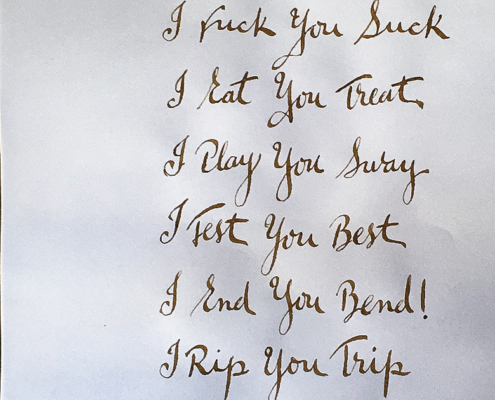 I Fuck You Suck
I Eat You Treat
I Play You Sway
I Test You Best
I End You Bend!
I Rip You Trip